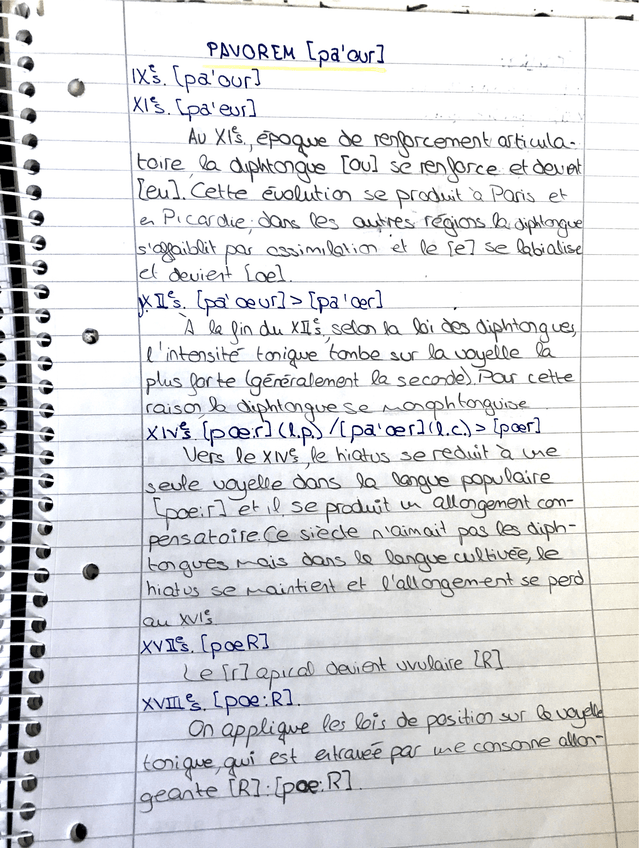 PAVOREM [pa'our]
IXe s. [pa'our]
XIe s. [pa'eur]
Au XIe s., époque de renforcement articula-
toire, la diphtongue [ou] se renforce et devient
[eu]. Cette évolution se produit à Paris et
en Picardie; dans les autres régions la diphtongue
s'affaiblit par assimilation et le [e] se labialise
et devient [oe].
XIIe s. [pa'oeur] > [pa'oer]
À la fin du XIIe s, selon la loi des diphtongues,
l'intensité tonique tombe sur la voyelle la
plus forte (généralement la seconde). Pour cette
raison, la diphtongue se monophtonguise.
XIVe s. [poe:r] (l.p.) / [pa'oer] (l.c.) > [poer]
Vers le XIVe s, le hiatus se réduit à une
seule voyelle dans la langue populaire
[poe:r] et il se produit un allongement com-
pensatoire. Ce siècle n'aimait pas les diph-
tongues mais dans la langue cultivée, le
hiatus se maintient et l'allongement se perd
au XVIe s
XVIIe s. [poeR]
Le [r] apical devient uvulaire [R]
XVIIIe s. [poe:R].
On applique les lois de position sur la voyelle
tonique, qui est entravée par une consonne allon-
geante [R]: [poe:R].